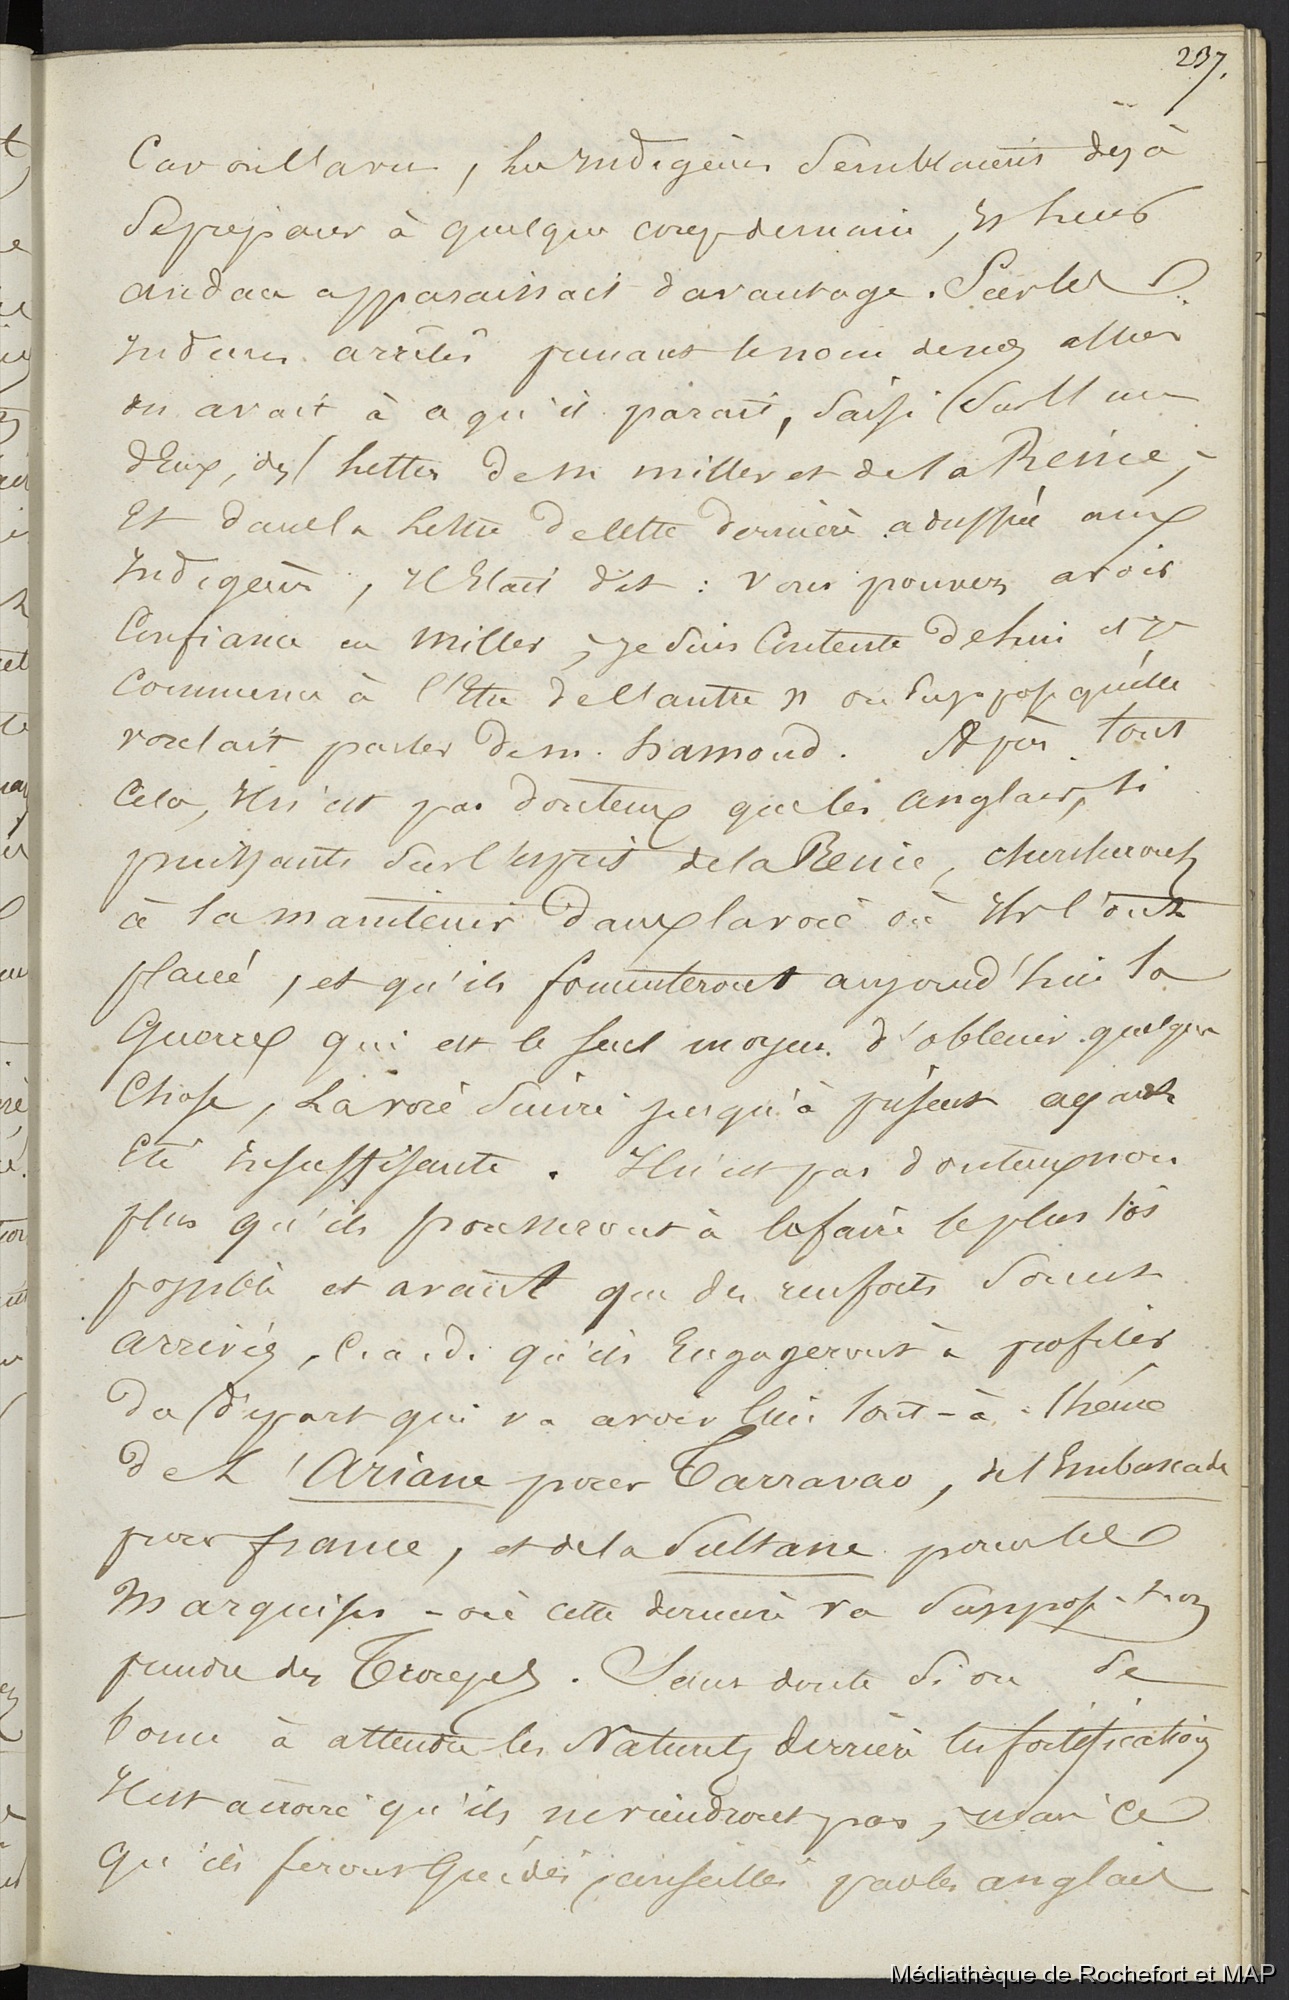 237.
Car outre Cela, les Indigènes Semblaient déjà
Se préparer à quelque coup-de-main, et leur
audace apparaissait davantage. Par les
Indiens arrêtés prenant le nom de nos alliés
on avait à ce qu'il paraît, Saisi Sur l'un
d'Eux, des lettres de M Miller et de la Reine,
Et dans la lettre de cette dernière adressée aux
Indigènes, Il Etait dit : Vous pouvez avoir
Confiance en Miller, je Suis Contente de lui et je
Commence à l'Etre de l'autre " on Suppose qu'elle
voulait parler de M. hamond. Après tout
Cela, Il n'est pas douteux que les anglais, Si
puissants Sur l'esprit de la Reine, chercheront
à la maintenir dans la voie où Ils l'ont
placée, et qu'ils fomenteront aujourd'hui la
Guerre qui est le seul moyen d'obtenir quelque
Chose, La voie Suivie jusqu'à présent ayant
Eté Insuffisante. Il n'est pas douteux non
plus qu'ils pousseront à la faire le plus tôt
possible et avant que des renforts Soient
arrivés, C. a. d. qu'ils Engageront à profiter
du départ qui va avoir lieu tout-à-l'heure
de L'Ariane pour Tarravao, de l'Embuscade
pour france, et de la Sultane pour les
Marquises - où cette dernière va Suppose-t-on
prendre des Troupes. Sans doute Si on Se
borne à attendre les Naturels derrière les fortifications
Il est à croire qu'ils ne viendront pas, mais Ce
qu'ils feront Guidés, conseillés par les anglais
Médiathèque de Rochefort et MAP